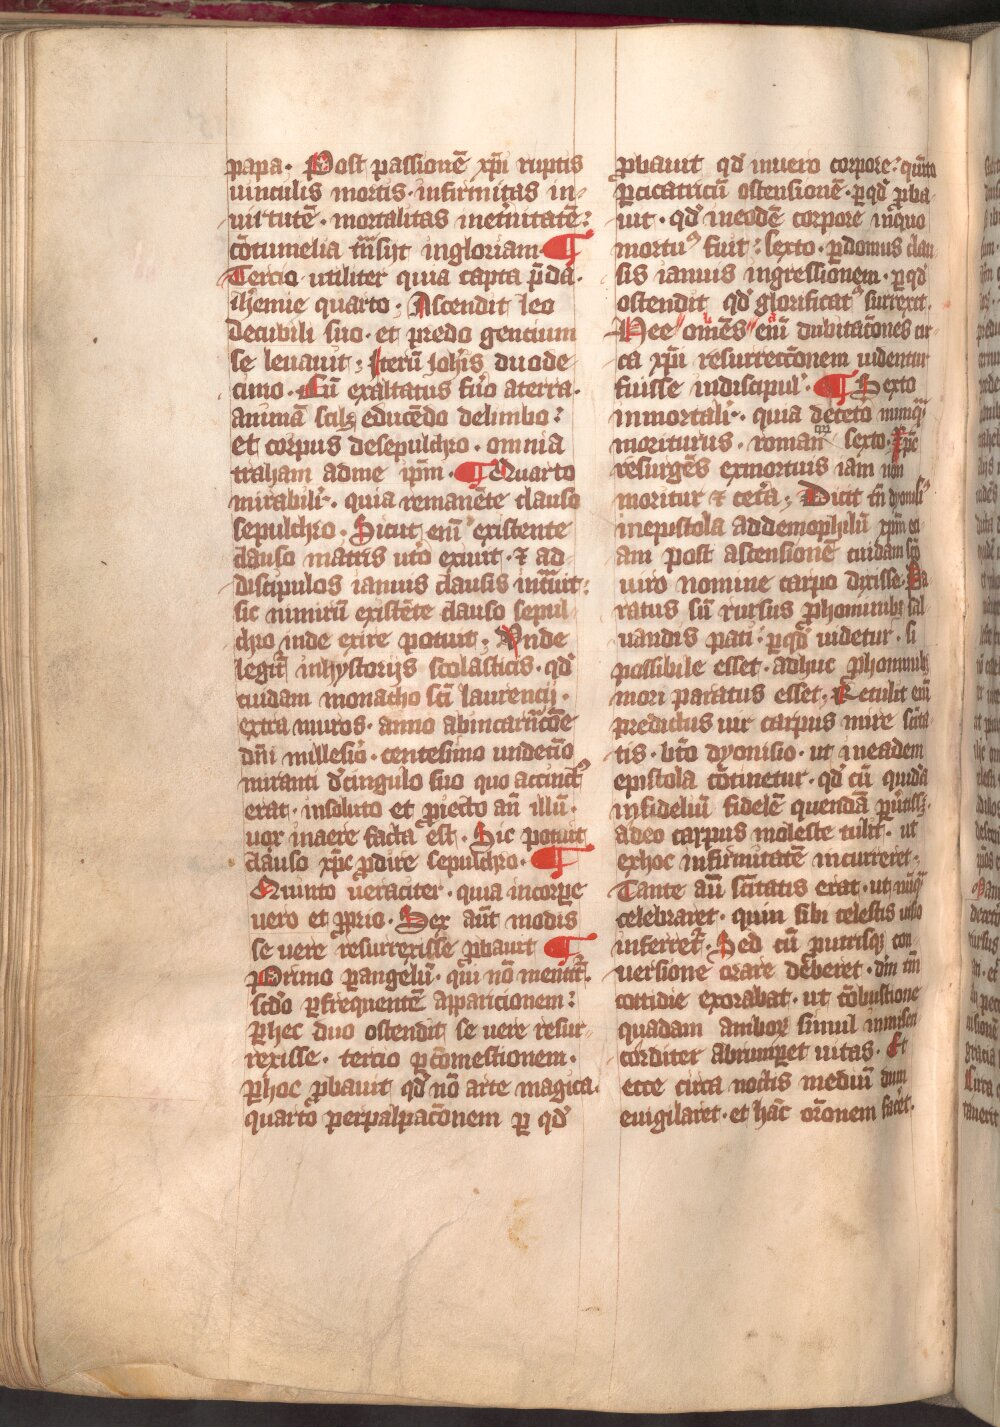 papa. Post passionē xp̄i ruptis
uinculis mortis. infirmitas in-
uirtutē. mortalitas inet̄nitatē:
cōtumelia trāsijt ingloriam. ¶
Tercio utiliter quia capta p̄dā.
ih̄emie quarto. Ascendit leo
decubili suo. et predo gentium
se leuauit; Iterū Joh̄is duode-
cimo. Cū exaltatus fūo aterra.
animā scilꝫ educēdo delimbo:
et corpus desepulchro. omnia
traham adme ip̄m. ¶ Quarto
mirabilīr. quia remanēte clauso
sepulchro. Sicut em̄ existente
clauso matris ut̄o exiuit. ⁊ ad
discipulos ianuis clausis int̄uit:
sic nimirū existēte clauso sepul-
chro inde exire potuit; Vnde
legit̄ inhystorijs scolasticis. qd̄
cuidam monacho sc̄i laurencij.
extra muros. anno abincarn̄cōe
dn̄i millesīo. centesimo undecīo
miranti d̄cingulo suo quo accinctꝰ
erat. insoluto et ꝓiecto an̄ illū.
uox inaere facta ē̄st. Sic potuit
clauso xp̄c ꝓdire sepulchro. ¶
Quinto ueraciter. quia incorꝑe
uero et ꝓprio. Sex aūt modis
se uere resurrexisse ꝓbauit ¶
Primo ꝑangelū. qui nō mentit̄.
sc̄do ꝑfrequentē apparicionem:
ꝑhec duo ostendit se uere resur-
rexisse. tercio ꝑcōmestionem.
ꝑhoc ꝓbauit qd̄ nō arte magica.
quarto perpalpacōnem ꝑ qd̄
ꝓbauit qd̄ inuero corpore: quīto
ꝑcicatricū ostensionē. ꝑqd̄ ꝓba-
uit. qd̄ ineodē corpore inquo
mortuꝰ fuit: sexto. ꝑdomus clau-
sis ianuis ingressionem. ꝑqd̄
ostendit qd̄ glorificatꝰ surrexit.
Hee om̄es em̄ dubitacōnes cir-
ca xp̄i resurreccōnem uidentur
fuisse indiscipul'. ¶ Sexto
inmortalīr. quia decet̄o numq̄
moriturus. roman̄ sexto. Xp̄c
resurgēs exmortuis iam non
moritur ⁊ cet̄a; Dicit tn̄ dyonisiꝰ
inepistola addemophilū xp̄m ec-
iam post ascensionē cuidam sc̄o
uiro nomine carpo dixisse. Pa-
ratus sū rursus ꝓhominibꝫ sal-
uandis pati. ꝑqd̄ uidetur. si
possibile esset. adhuc ꝓhominibꝫ
mori paratus esset; Retulit em̄
predictus uir carpus mire sc̄ita-
tis. bt̄o dyonisio. ut ineadem
epistola cōtinetur. qd̄ cū quidā
infideliū fidelē quendā ꝑūtissꝫ.
adeo carpus moleste tulit. ut
exhoc infirmitatē incurreret.
Tante aū sc̄itatis erat. ut nūq̄
celebraret. quin sibi celestis uisio
inferret̄. Sed cū ꝓutrisqꝫ con-
uersione orare dēberet. dm̄ tn̄
cottidie exorabat. ut cōbustione
quadam amboꝝ simul inmiseri-
corditer abrumꝑet uitas. Et
ecce circa noctis mediū dum
euigilaret. et hāc or̄onem facēt.